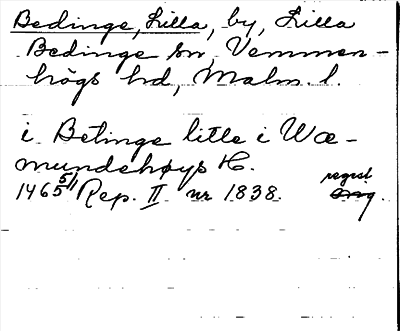 Bedinge, Lilla, by, Lilla
Bedinge sn, Vemmen-
högs hd, Malm. l.
i Betinge litle i Wæ-
mundehøys H.
1465 5/1 Rep. II nr 1838. regest